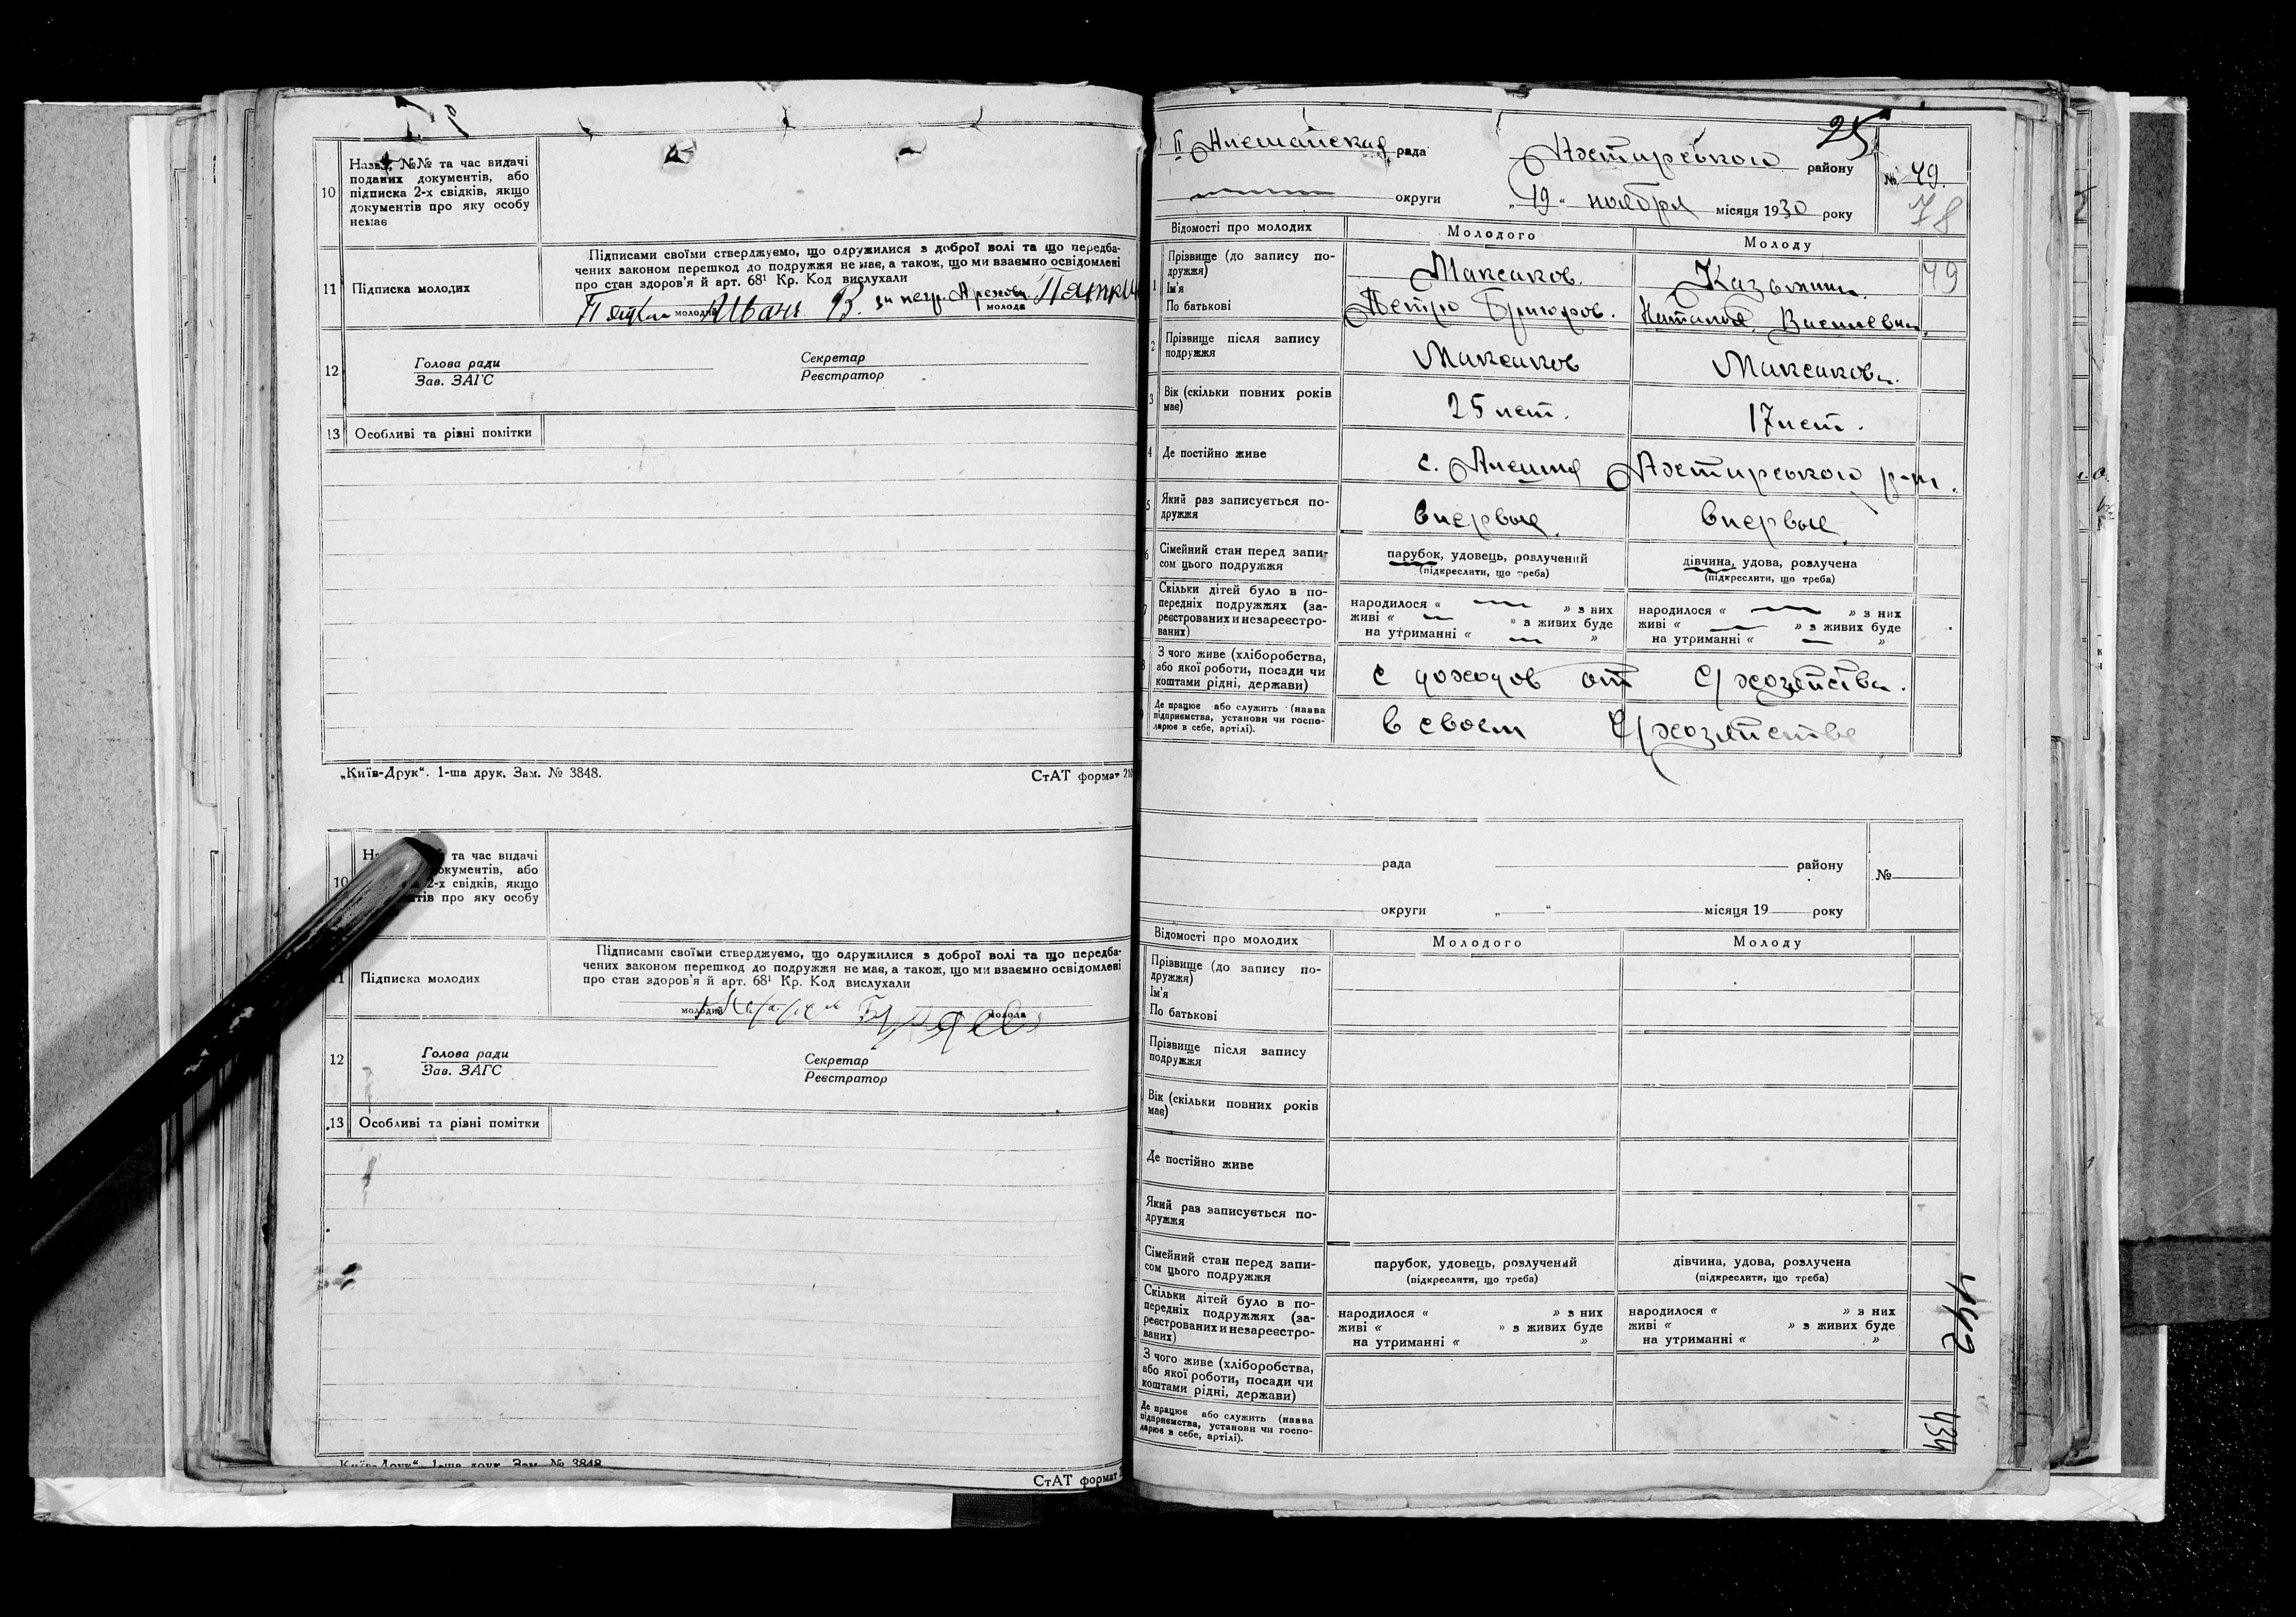 10
Назва, №№ та час видачі
поданих документів, або
підписка 2-х свідків, якщо
документів про яку особу
немає
11
Підписка молодих
Підписами своїми стверджуємо, що одружилися з доброї волі та що передба-
чених законом перешкод до подружжя не має, а також, що ми взаємно освідомлені
про стан здоров'я й арт. 68¹ Кр. Код вислухали
молодий
молода
12
Голова ради
Зав. ЗАГС
Секретар
Реєстратор
13
Особливі та різні помітки
„Київ-Друк“. 1-ша друк. Зам. № 3848.
СтАТ формат 210
10
та час видачі
документів, або
2-х свідків, якщо
про яку особу
11
Підписка молодих
Підписами своїми стверджуємо, що одружилися з доброї волі та що передба-
чених законом перешкод до подружжя не має, а також, що ми взаємно освідомлені
про стан здоров'я й арт. 68¹ Кр. Код вислухали
молодий
молода
12
Голова ради
Зав. ЗАГС
Секретар
Реєстратор
13
Особливі та різні помітки
Київ-Друк“. 1-ша друк. Зам. № 3848
СтАТ формат
25
рада
району
№ 49.
округи
„19“ ноября місяця 1930 року
78
Відомості про молодих
Молодого
Молоду
49
1
Прізвище (до запису по-
дружжя)
Ім'я
По батькові
Максаков.
Петро Григоров.
Казьмина.
Наталья Васильевна.
2
Прізвище після запису
подружжя
Максаков
Максакова.
3
Вік (скільки повних років
має)
25 лет.
17 лет.
4
Де постійно живе
с. Алешня Ахтирського р-на.
5
Який раз записується по-
дружжя
впервые.
впервые.
6
Сімейний стан перед запи-
сом цього подружжя
парубок, удовець, розлучений
(підкреслити, що треба)
дівчина, удова, розлучена
(підкреслити, що треба)
7
Скільки дітей було в по-
передніх подружжях (за-
реєстрованих и незареєстро-
ваних)
народилося « » з них
живі « » з живих буде
на утриманні « »
народилося « » з них
живі « » з живих буде
на утриманні « »
8
З чого живе (хліборобства,
або якої роботи, посади чи
коштами рідні, держави)
с доходов от С/хозяйства.
Де працює або служить (назва
підприємства, установи чи госпо-
дарює в себе, артілі).
в своем С/хозяйстве
рада
району
№
округи
„ “ місяця 19 року
Відомості про молодих
Молодого
Молоду
Прізвище (до запису по-
дружжя)
Ім'я
По батькові
Прізвище після запису
подружжя
Вік (скільки повних років
має)
Де постійно живе
Який раз записується по-
дружжя
Сімейний стан перед запи-
сом цього подружжя
парубок, удовець, розлучений
(підкреслити, що треба)
дівчина, удова, розлучена
(підкреслити, що треба)
Скільки дітей було в по-
передніх подружжях (за-
реєстрованих и незареєстро-
ваних)
народилося « » з них
живі « » з живих буде
на утриманні « »
народилося « » з них
живі « » з живих буде
на утриманні « »
З чого живе (хліборобства,
або якої роботи, посади чи
коштами рідні, держави)
Де працює або служить (назва
підприємства, установи чи госпо-
дарює в себе, артілі).
442
434